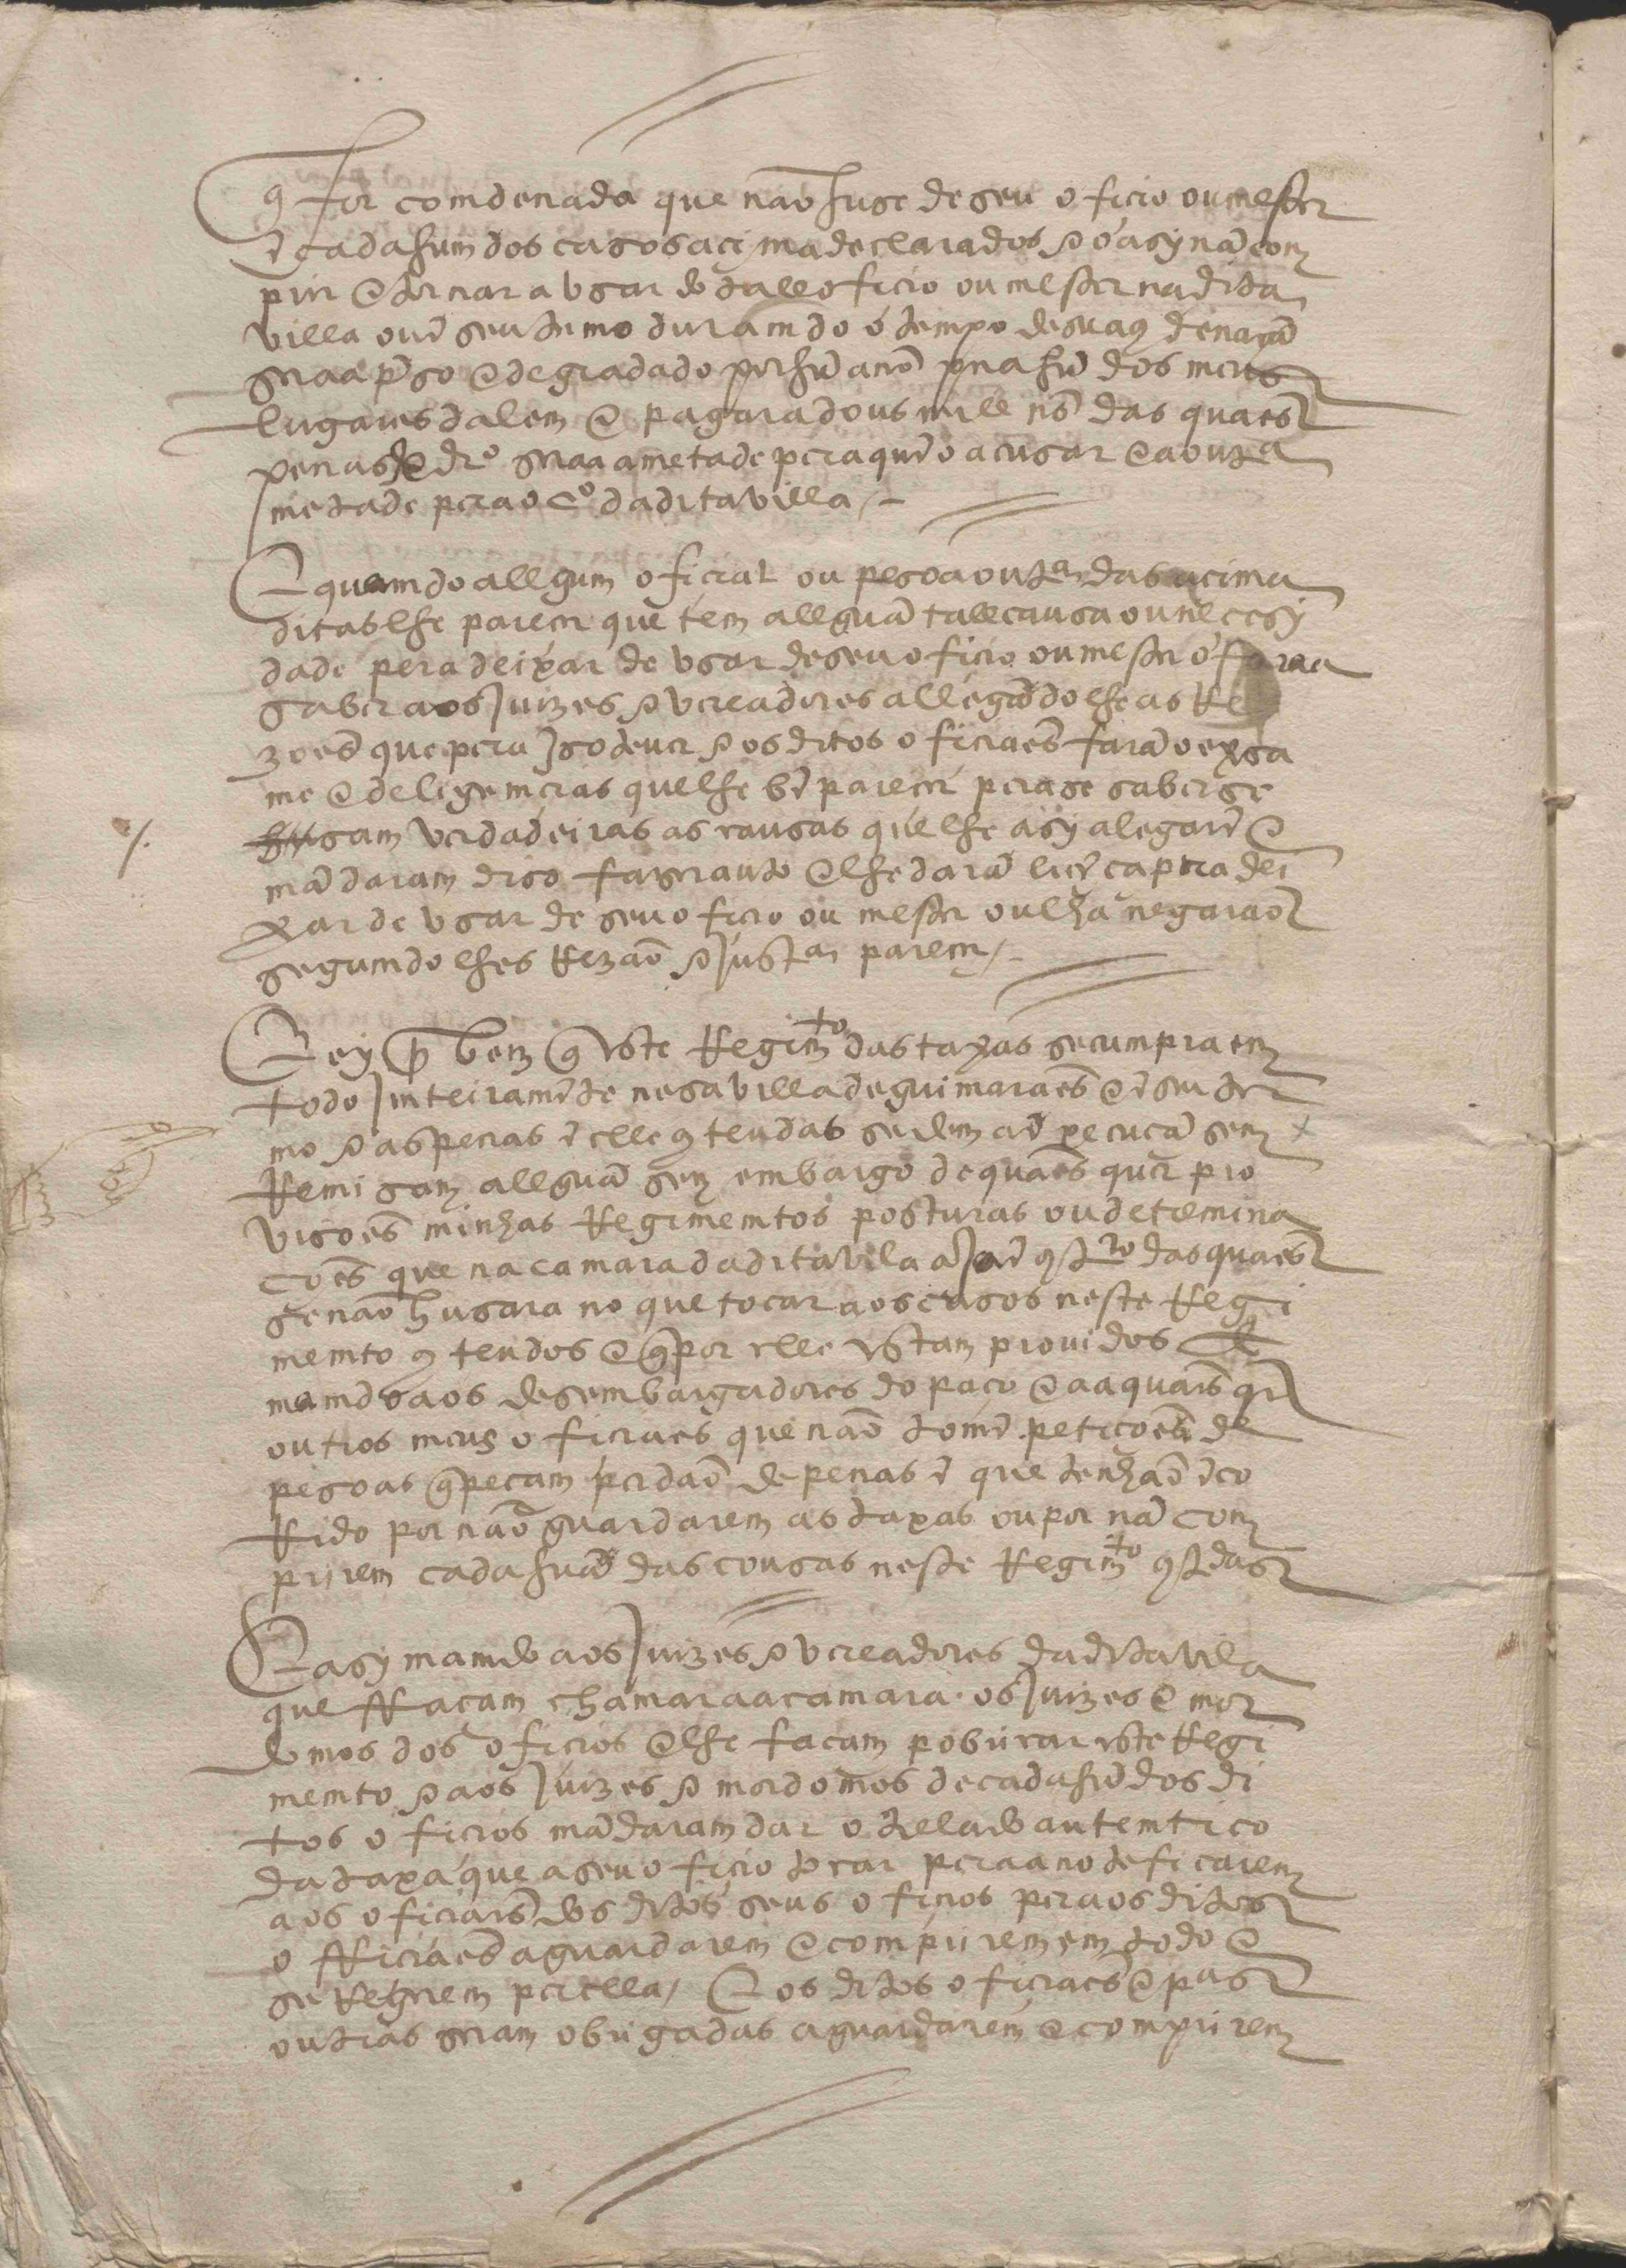 q for comdenada que naõ huse de seu oficio ou mester
ẽ cada hum dos casos acima declarados & o asy nã com
prir & tornar a vsar do tall oficio ou mester na dita
villa ou ẽ seu termo duramdo o tempo de sua 9denaçã
seraa preso & degradado por hũ anno pera hũ dos meus
lugares dalem & pagara dous mill rs das quaes
penas de drº seraa a metade pera quẽ o acusar & a outª
metade pera o cº da dita villa /-
E quamdo allgum oficial ou pesoa outª das acima
ditas lhe parecer que tem allguã tall causa ou necesy
dade pera deixar de vsar de seu oficio ou mester o faraa
saber aos Juizes & vereadores allegãdolhe as Re
zoes que pera Iso tever & os ditos oficiaes farã o exsa
me & deligemcias que lhe bẽ parecer pera se saber se
sam verdadeiras as causas que lhe asy alegarẽ &
mãdaram diso fazer auto & lhe darã licẽca pera dei
xar de vsar de seu oficio ou mester ou lha negaraõ
segumdo lhes Rezaõ & Justª parecer /-
E ey por bem q este Regimto das taxas se cumpra em
todo Imteiramẽte nesa villa de guimaraes & ẽ seu ter
mo & as penas ẽ elle 9teudas se dem a ẽxecucã sem
Remisam allguã sem embargo de quaes quer pro
visoes minhas Regimemtos posturas ou detremina
coes que na camara da dita vila aJa ẽ 9trº das quaes
se naõ husara no que tocar aos casos neste Regi
memto 9teudos & q por elle estam providos E
mamdo aos desembargadores do paço & a aquaes qr
outros meus oficiaes que naõ tomẽ peticoes de
pesoas q pecam perdaõ de penas ẽ que tenhaõ ẽco
Rido por naõ guardarem as taxas ou por nã com
prirem cada huã das cousas neste Regimto 9tdas
E asy mamdo aos Juizes & vereadores da dita vila
que ffacam chamar aa camara os Juizes & mor
domos dos oficios & lhe facam pobricar este Regi
memto & aos Juizes & mordomos de cada hũ dos di
tos oficios mãdaram dar o trelado autemtico
da taxa que a seu oficio tocar pera a noteficarem
aos oficiaes dos ditos seus oficios pera os ditos
officiaes a guardarem & comprirem em todo &
se Regerem per ella / E os ditos oficiaes & pªs
outras seram obrigadas a guardarem & comprirem